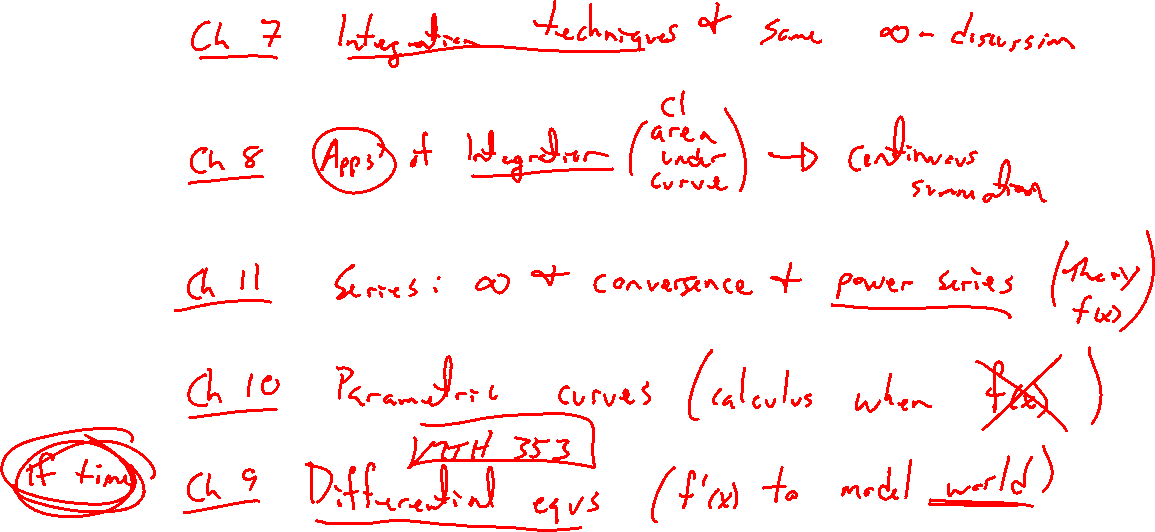 Ch 7 Integration techniques & some ∞ - discussion
Ch 8 Apps' of Integration (C1 area under curve) → continuous summation
Ch 11 Series: ∞ & convergence & power series (theory f(x))
Ch 10 Parametric curves (calculus when f(x))
MTH 353
if time Ch 9 Differential eqns (f'(x) to model world)